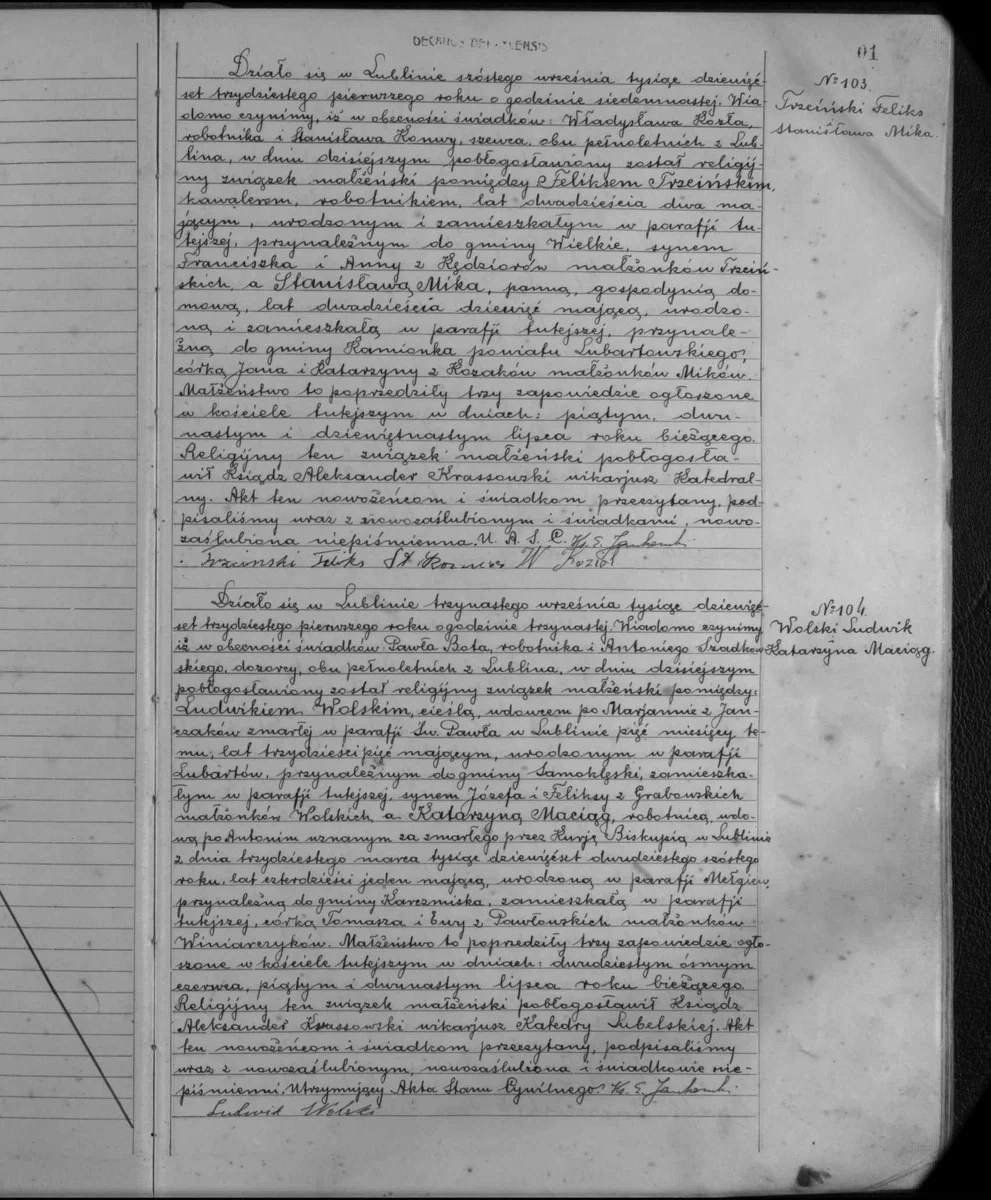 01
Nº 103.
Trzciński Feliks
Stanisława Mika.
Działo się w Lublinie szóstego września tysiąc dziewięć-
set trzydziestego pierwszego roku o godzinie siedemnastej. Wia-
domo czynimy, iż w obecności świadków: Władysława Kozła,
robotnika i Stanisława Konwy, szewca, obu pełnoletnich z Lub-
lina, w dniu dzisiejszym pobłogosławiony został religij-
ny związek małżeński pomiędzy Feliksem Trzcińskim,
kawalerem, robotnikiem, lat dwadzieścia dwa ma-
jącym, urodzonym i zamieszkałym w parafji tu-
tejszej, przynależnym do gminy Wielkie, synem
Franciszka i Anny z Kędziorów małżonków Trzciń-
skich, a Stanisławą Mika, panną, gospodynią do-
mową, lat dwadzieścia dziewięć mającą, urodzo-
ną i zamieszkałą w parafji tutejszej, przynale-
żną do gminy Kamionka powiatu Lubartowskiego,
córką Jana i Katarzyny z Kozaków małżonków Mików.
Małżeństwo to poprzedziły trzy zapowiedzie ogłoszone
w kościele tutejszym w dniach: piątym, dwu-
nastym i dziewiętnastym lipca roku bieżącego.
Religijny ten związek małżeński pobłogosła-
wił Ksiądz Aleksander Krassowski wikarjusz Katedral-
ny. Akt ten nowożeńcom i świadkom przeczytany, pod-
pisaliśmy wraz z nowozaślubionym i świadkami, nowo-
zaślubiona niepiśmienna. U. A. S. C. Ks. E.
Trzciński Feliks St W Kozioł
Nº 104.
Wolski Ludwik
Katarzyna Maciąg.
Działo się w Lublinie trzynastego września tysiąc dziewięć-
set trzydziestego pierwszego roku o godzinie trzynastej. Wiadomo czynimy,
iż w obecności świadków Pawła Bota, robotnika i Antoniego Szadkow-
skiego, dozorcy, obu pełnoletnich z Lublina, w dniu dzisiejszym
pobłogosławiony został religijny związek małżeński pomiędzy:
Ludwikiem Wolskim, cieślą, wdowcem po Marjannie z Jan-
czaków zmarłej w parafji Św. Pawła w Lublinie pięć miesięcy te-
mu, lat trzydzieści pięć mającym, urodzonym w parafji
Lubartów, przynależnym do gminy Samoklęski, zamieszka-
łym w parafji tutejszej, synem Józefa i Feliksy z Grabowskich
małżonków Wolskich, a Katarzyną Maciąg, robotnicą, wdo-
wą po Antonim uznanym za zmarłego przez Kurję Biskupią w Lublinie
z dnia trzydziestego marca tysiąc dziewięćset dwudziestego szóstego
roku, lat czterdzieści jeden mającą, urodzoną w parafji Mełgiew,
przynależną do gminy Karczmiska, zamieszkałą w parafji
tutejszej, córką Tomasza i Ewy z Pawłowskich małżonków
Winiarczyków. Małżeństwo to poprzedziły trzy zapowiedzie ogło-
szone w kościele tutejszym w dniach: dwudziestym ósmym
czerwca, piątym i dwunastym lipca roku bieżącego.
Religijny ten związek małżeński pobłogosławił Ksiądz
Aleksander Krassowski wikarjusz Katedry Lubelskiej. Akt
ten nowożeńcom i świadkom przeczytany, podpisaliśmy
wraz z nowozaślubionym, nowozaślubiona i świadkowie nie-
piśmienni. Utrzymujący Akta Stanu Cywilnego: Ks. E.
Ludwik Wolski